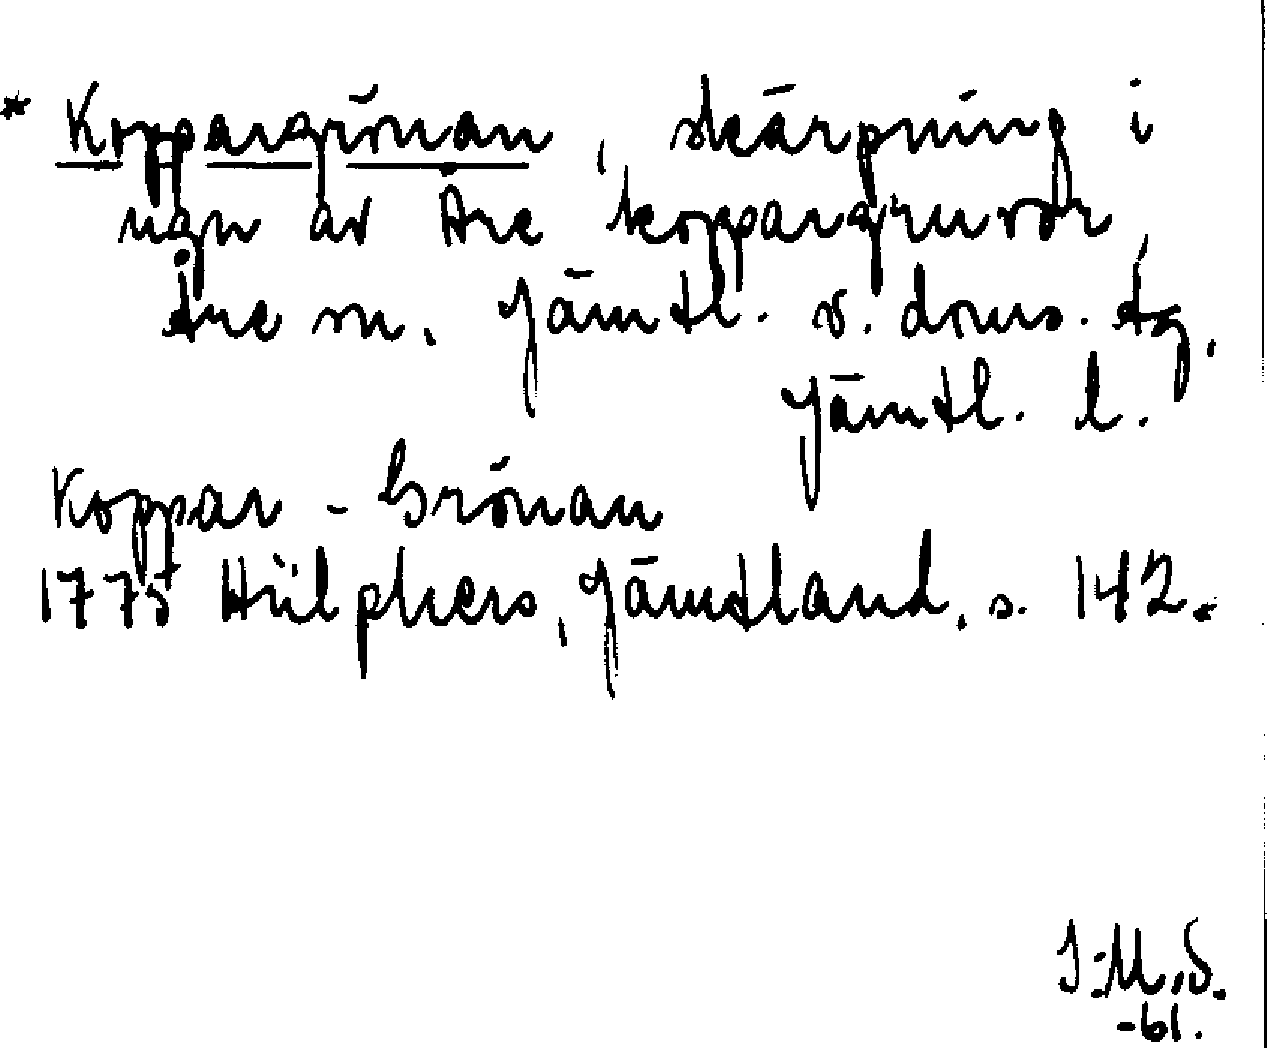 * Koppargrönan, skärpning i
ugn av Åre koppargruvor,
Åre sn. Jämtl. v. doms. tg,
Jämtl. l.
Koppar-Grönan
1775 Hülphers, Jämtland, s. 142.
I:M.S.
-61.